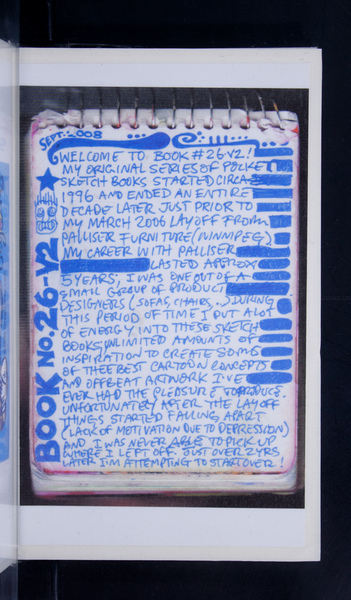 SEPT. 2008
WELCOME TO BOOK #26-V2!
MY ORIGINAL SERIES OF POCKET
SKETCH BOOKS STARTED CIRCA
1996 AND ENDED AN ENTIRE
DECADE LATER JUST PRIOR TO
MY MARCH 2006 LAY OFF FROM
PALLISER FURNITURE (WINNIPEG)
MY CAREER WITH PALLISER
LASTED APPROX
5 YEARS; I WAS ONE OUT OF A
SMALL GROUP OF PRODUCT
DESIGNERS (SOFAS, CHAIRS..) DURING
THIS PERIOD OF TIME I PUT A LOT
OF ENERGY INTO THESE SKETCH
BOOKS, UNLIMITED AMOUNTS OF
INSPIRATION TO CREATE SOME
OF THEE BEST CARTOON CONCEPTS
AND OFFBEAT ARTWORK I'VE
EVER HAD THE PLEASURE TO PRODUCE.
UNFORTUNATELY AFTER THE LAY OFF
THINGS STARTED FALLING APART
(LACK OF MOTIVATION DUE TO DEPRESSION)
AND I WAS NEVER ABLE TO PICK UP
WHERE I LEFT OFF. JUST OVER 2 YRS
LATER I'M ATTEMPTING TO START OVER!
BOOK No. 26-V2